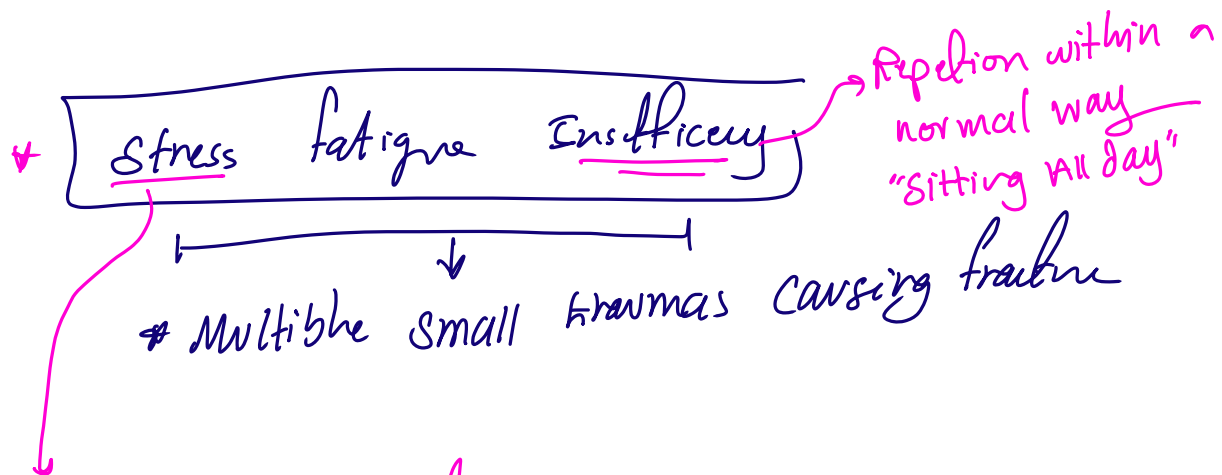 * Stress fatigue Insufficeny
Repetion within a
normal way
"Sitting All day"
* Multible small traumas causing fracture